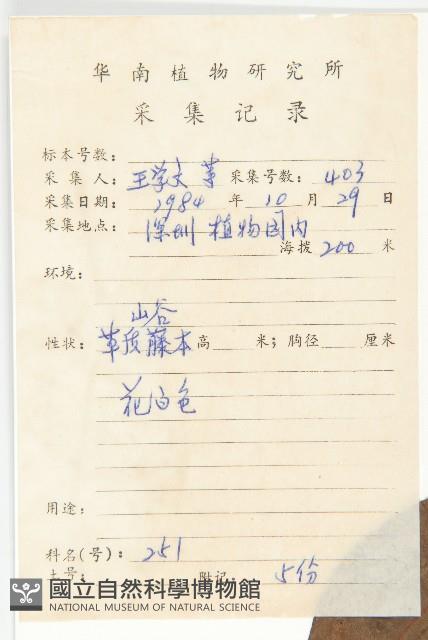 华南植物研究所
采集记录
标本号数：
采集人：王学文 等 采集号数：403
采集日期：1984 年 10 月 29 日
采集地点：深圳 植物园内
海拨 200 米
环境：
山谷
性状：草质藤本 高 米；胸径 厘米
花白色
用途：
科名(号)：251
土名： 附记： 5份
國立自然科學博物館
NATIONAL MUSEUM OF NATURAL SCIENCE